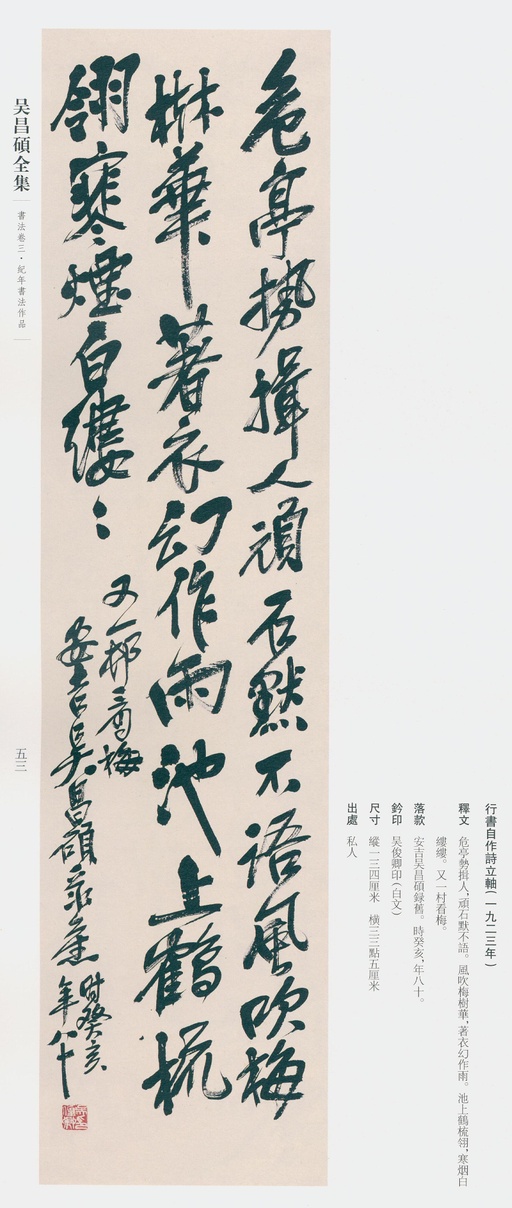 行書自作詩立軸(一九二三年)
釋文 危亭勢揖人,頑石默不語。風吹梅樹華,著衣幻作雨。池上鶴梳翎,寒烟白
縷縷。又一村看梅。
落款 安吉吴昌碩録舊。時癸亥,年八十。
鈐印 吴俊卿印(白文)
尺寸 縱一三四厘米 橫三三點五厘米
出處 私人
危亭勢揖人頑石默不語風吹梅
樹華著衣幻作雨池上鶴梳
翎寒煙白縷〻
又一邨看梅
安吉吴昌碩录舊
時癸亥
年八十
吴昌碩全集
書法卷三·紀年書法作品
五三